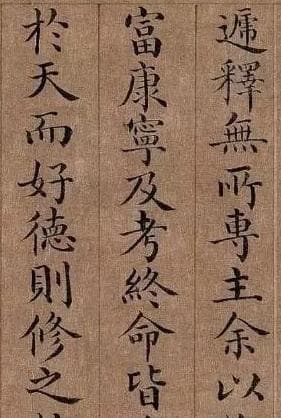 遞釋無所專主余以
富康寧及考終命皆
於天而好德則修之